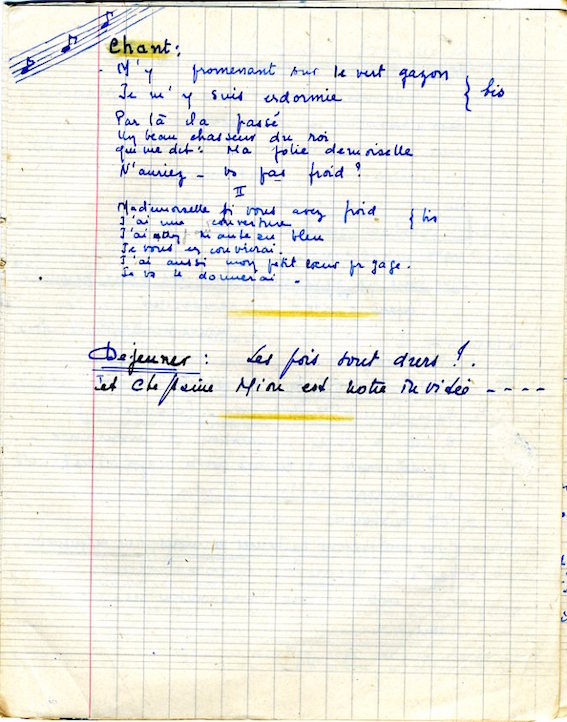 Chant :
M'y promenant sur le vert gazon
Je m'y suis endormie } bis
Par là il a passé
Un beau chasseur du roi
Qui me dit : Ma jolie demoiselle
N'auriez-vs pas froid ?
II
Mademoiselle si vous avez froid } bis
J'ai une couverture
J'ai manteau bleu
Je vous en couvrirai
J'ai aussi mon petit cœur pr gage.
Je vs le donnerai.
Déjeuner : Les pois sont durs !.
et Cheftaine Mion est notre invitée ----